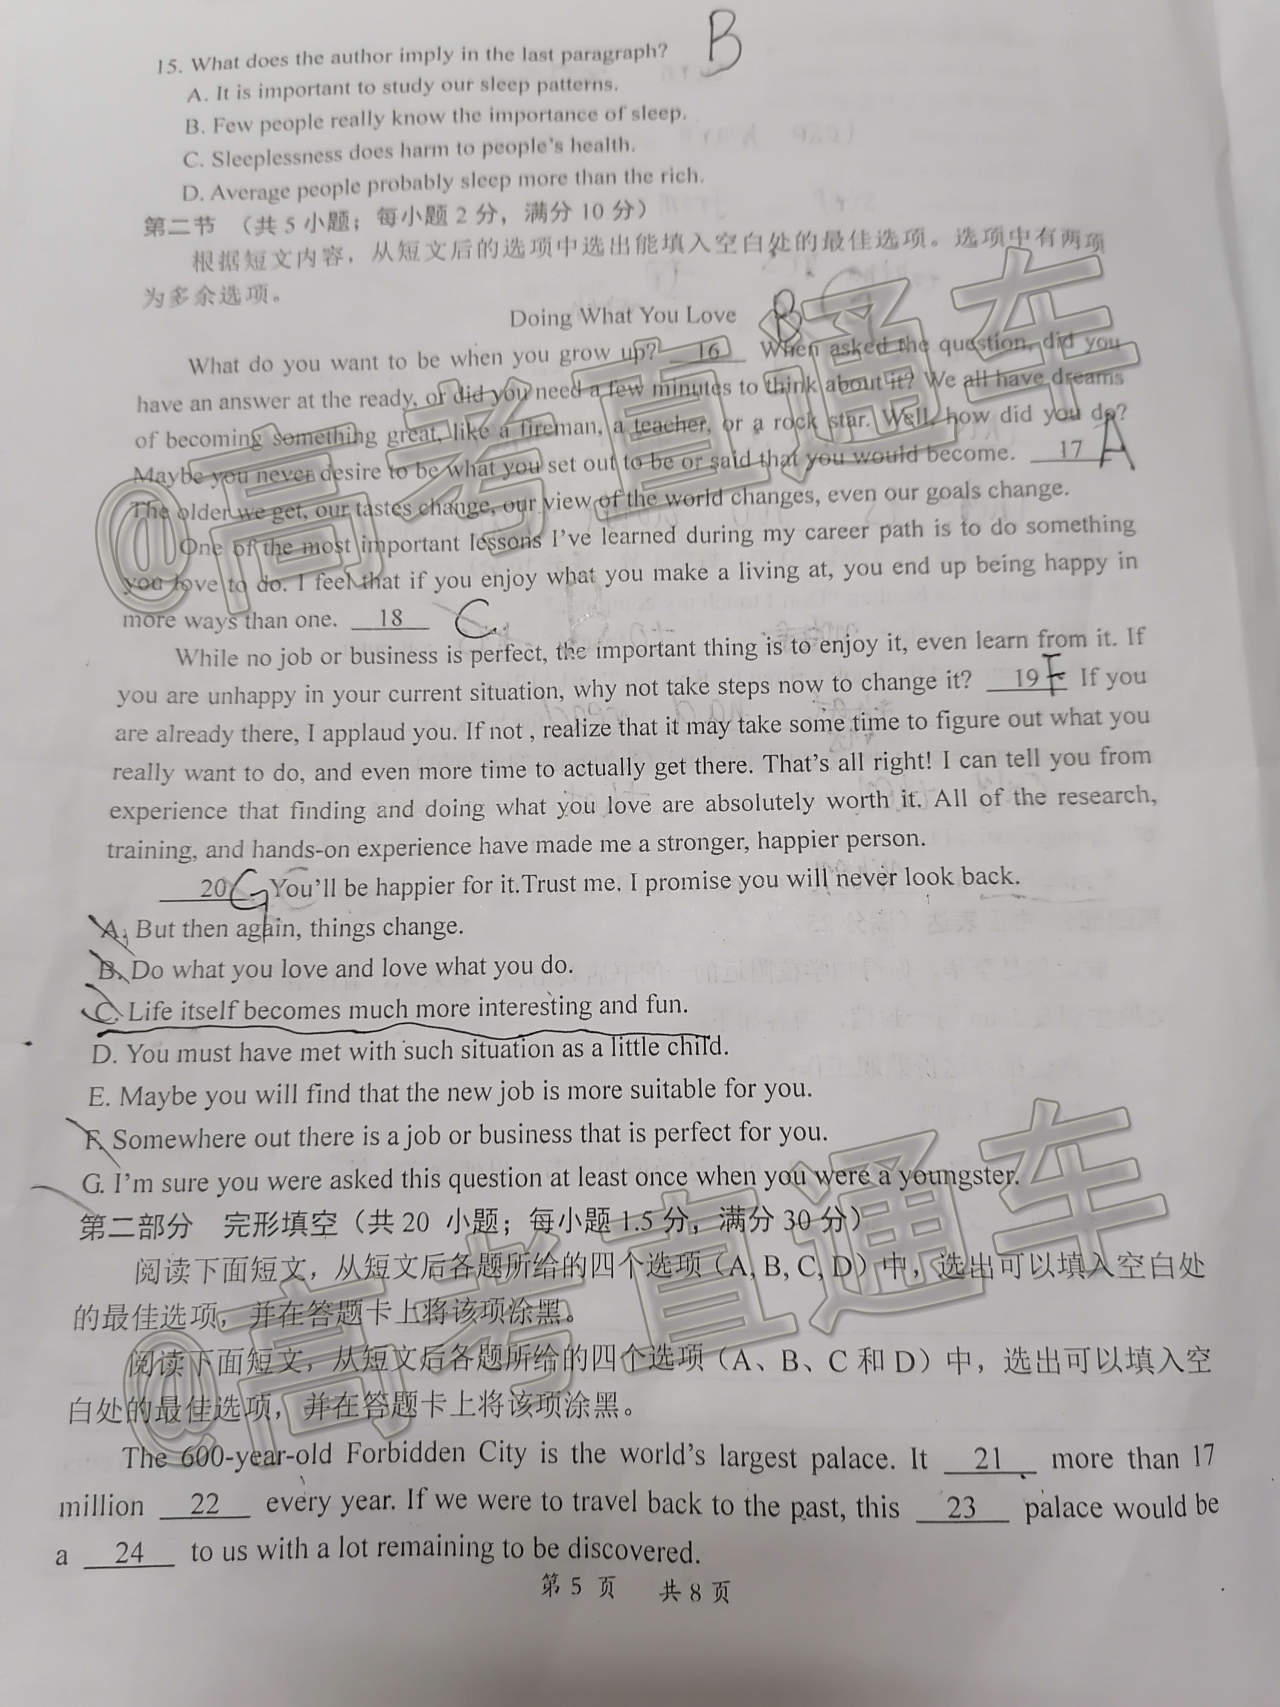 15. What does the author imply in the last paragraph? B
A. It is important to study our sleep patterns.
B. Few people really know the importance of sleep.
C. Sleeplessness does harm to people's health.
D. Average people probably sleep more than the rich.
第二节 （共 5 小题；每小题 2 分，满分 10 分）
根据短文内容，从短文后的选项中选出能填入空白处的最佳选项。选项中有两项
为多余选项。
Doing What You Love B
What do you want to be when you grow up? 16 When asked the question, did you
have an answer at the ready, or did you need a few minutes to think about it? We all have dreams
of becoming something great, like a fireman, a teacher, or a rock star. Well, how did you do?
Maybe you never desire to be what you set out to be or said that you would become. 17 A
The older we get, our tastes change, our view of the world changes, even our goals change.
One of the most important lessons I've learned during my career path is to do something
you love to do. I feel that if you enjoy what you make a living at, you end up being happy in
more ways than one. 18 C
While no job or business is perfect, the important thing is to enjoy it, even learn from it. If
you are unhappy in your current situation, why not take steps now to change it? 19 F If you
are already there, I applaud you. If not , realize that it may take some time to figure out what you
really want to do, and even more time to actually get there. That's all right! I can tell you from
experience that finding and doing what you love are absolutely worth it. All of the research,
training, and hands-on experience have made me a stronger, happier person.
20 G You'll be happier for it.Trust me. I promise you will never look back.
A. But then again, things change.
B. Do what you love and love what you do.
C. Life itself becomes much more interesting and fun.
D. You must have met with such situation as a little child.
E. Maybe you will find that the new job is more suitable for you.
F. Somewhere out there is a job or business that is perfect for you.
G. I'm sure you were asked this question at least once when you were a youngster.
第二部分 完形填空（共 20 小题；每小题 1.5 分，满分 30 分）
阅读下面短文，从短文后各题所给的四个选项（A, B, C, D）中，选出可以填入空白处
的最佳选项，并在答题卡上将该项涂黑。
阅读下面短文，从短文后各题所给的四个选项（A、B、C 和 D）中，选出可以填入空
白处的最佳选项，并在答题卡上将该项涂黑。
The 600-year-old Forbidden City is the world's largest palace. It 21 more than 17
million 22 every year. If we were to travel back to the past, this 23 palace would be
a 24 to us with a lot remaining to be discovered.
第 5 页 共 8 页
@高考直通车
@高考直通车